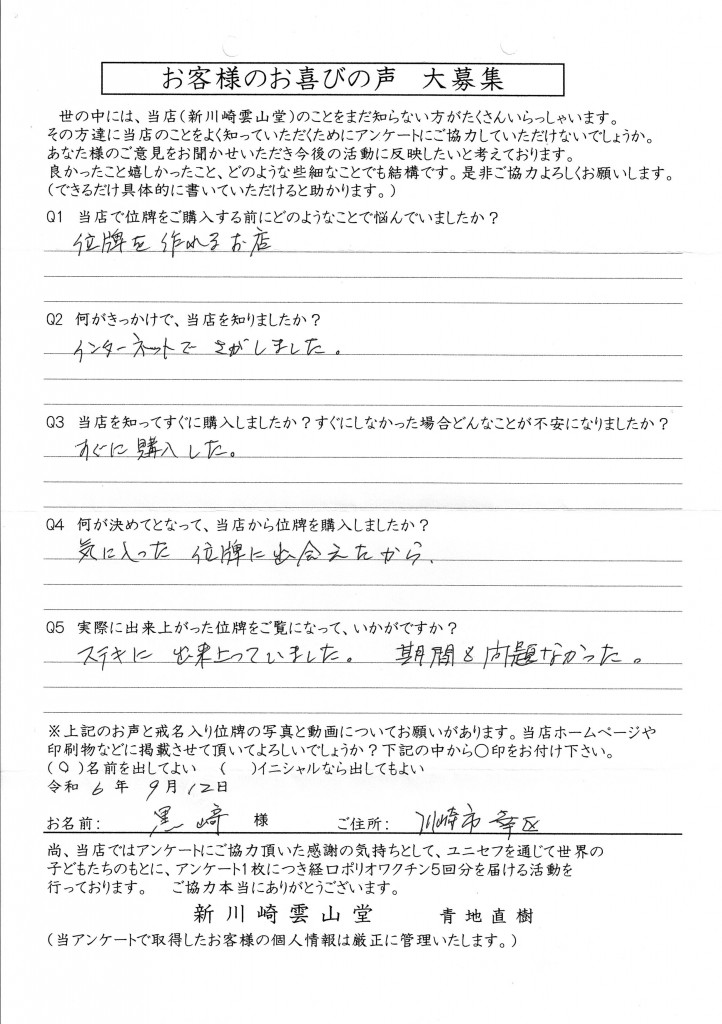 お客様のお喜びの声　大募集
世の中には、当店(新川崎雲山堂)のことをまだ知らない方がたくさんいらっしゃいます。
その方達に当店のことをよく知っていただくためにアンケートにご協力していただけないでしょうか。
あなた様のご意見をお聞かせいただき今後の活動に反映したいと考えております。
良かったこと嬉しかったこと、どのような些細なことでも結構です。是非ご協力よろしくお願いします。
(できるだけ具体的に書いていただけると助かります。)
Q1 当店で位牌をご購入する前にどのようなことで悩んでいましたか？
位牌を作れるお店
Q2 何がきっかけで、当店を知りましたか？
インターネットでさがしました。
Q3 当店を知ってすぐに購入しましたか？すぐにしなかった場合どんなことが不安になりましたか？
すぐに購入した。
Q4 何が決めてとなって、当店から位牌を購入しましたか？
気に入った 位牌に出会えたから、
Q5 実際に出来上がった位牌をご覧になって、いかがですか？
ステキに 出来上っていました。 期間も問題なかった。
※上記のお声と戒名入り位牌の写真と動画についてお願いがあります。当店ホームページや
印刷物などに掲載させて頂いてよろしいでしょうか？下記の中から〇印をお付け下さい。
(〇)名前を出してよい　(　)イニシャルなら出してもよい
令和 6 年 9 月 12 日
お名前: 黒﨑 様　ご住所: 川崎市幸区
尚、当店ではアンケートにご協力頂いた感謝の気持ちとして、ユニセフを通じて世界の
子どもたちのもとに、アンケート1枚につき経口ポリオワクチン5回分を届ける活動を
行っております。　ご協力本当にありがとうございます。
新川崎雲山堂　青地直樹
(当アンケートで取得したお客様の個人情報は厳正に管理いたします。)